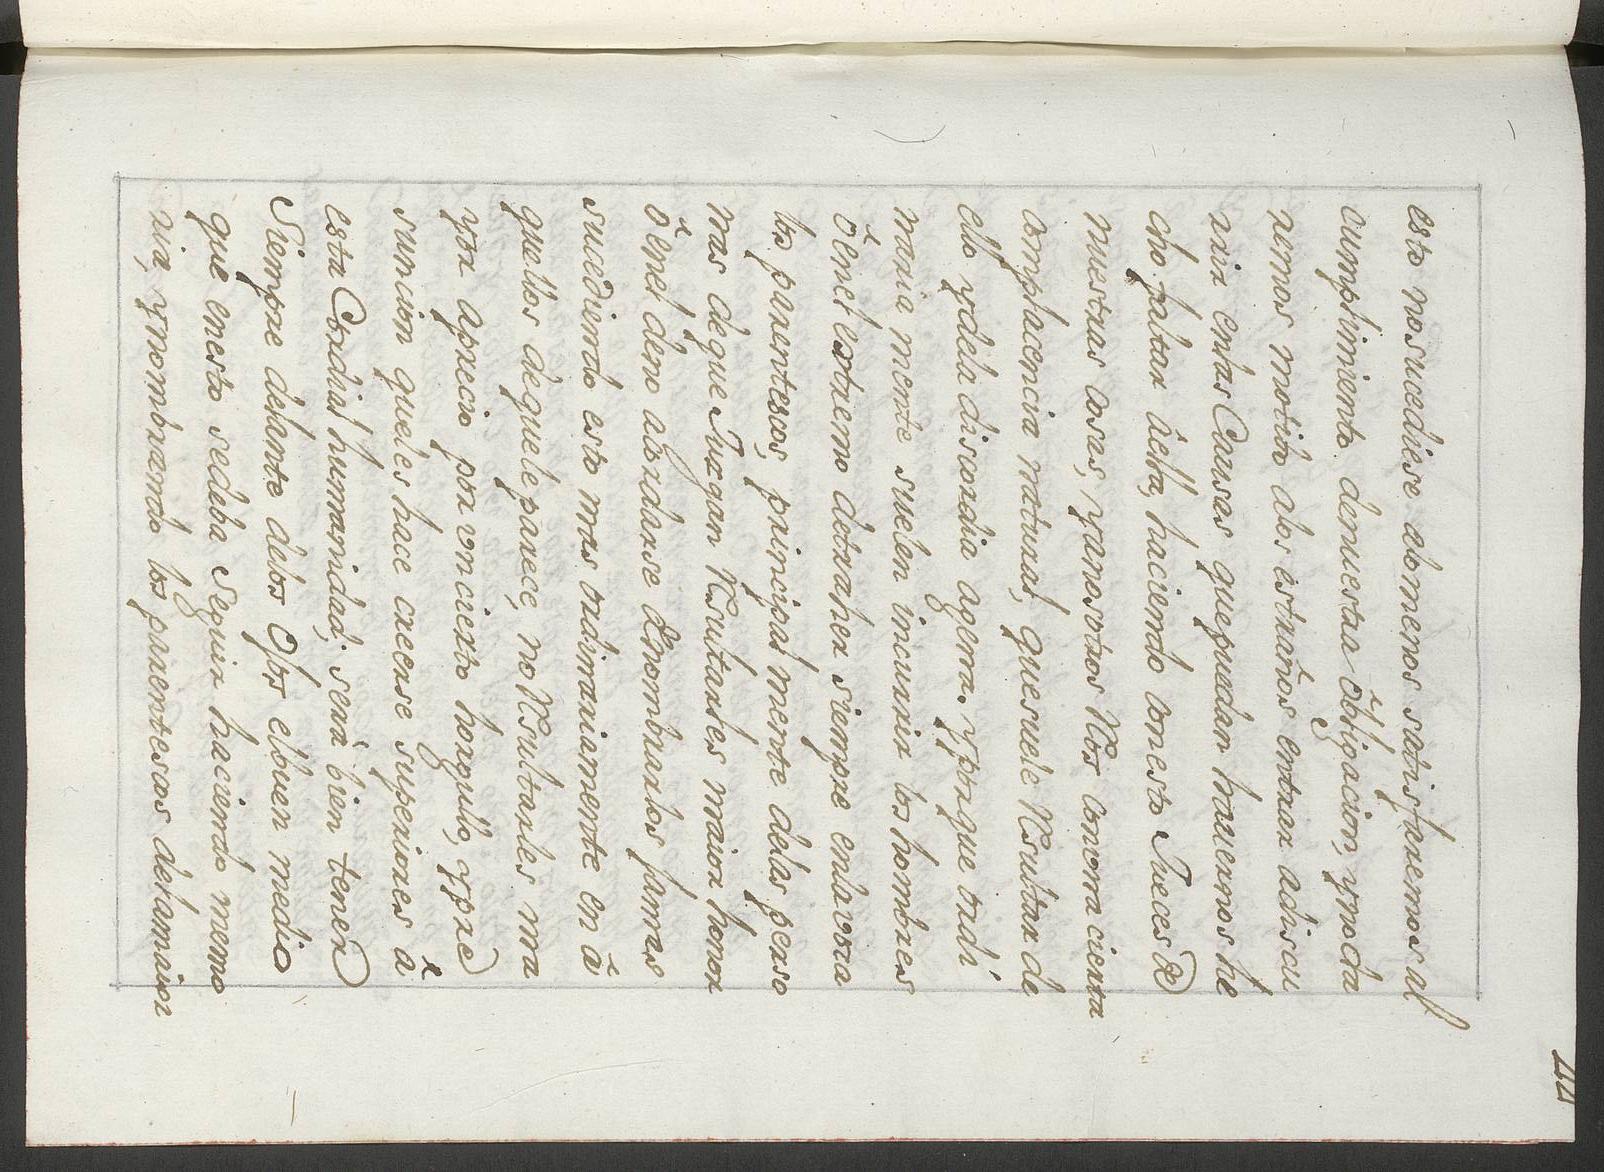 44
esto no sucediese alo menos satisfaremos al
cumplimiento denuestra õbligacion, ynoda
remos motivo alos estraños entrar adiscu
rrir enlas Causas quepuedan havernos he
cho faltar âella, haciendo conesto Jueces de
nuestras cosas, yanosotros Nos conotra cierta
complacencia natural, quesuele Rsultar de
ello ydela discordia agena. Yporque ordi
naria mente suelen incurrir los hombres
õ enel estremo detraher siempre enlavoca
los parentescos, principal mente delas perso
nas deque Juzgan Rsultarles maior honor
õ enel deno acordarse Enombrarlos jamas
sucediendo esto mas ordinariamente en ã
quellos dequeleparece, no Rsultarles ma
yor aprecio por vn cierto horgullo, ypre
suncion queles hace creerse superiores ã
esta Cordial humanidad; será bien tener
Siempre delante delos Ojos elbuen medio
que enesto sedeba Seguir haciendo memo
ria, ynombrando los parentescos delamaior